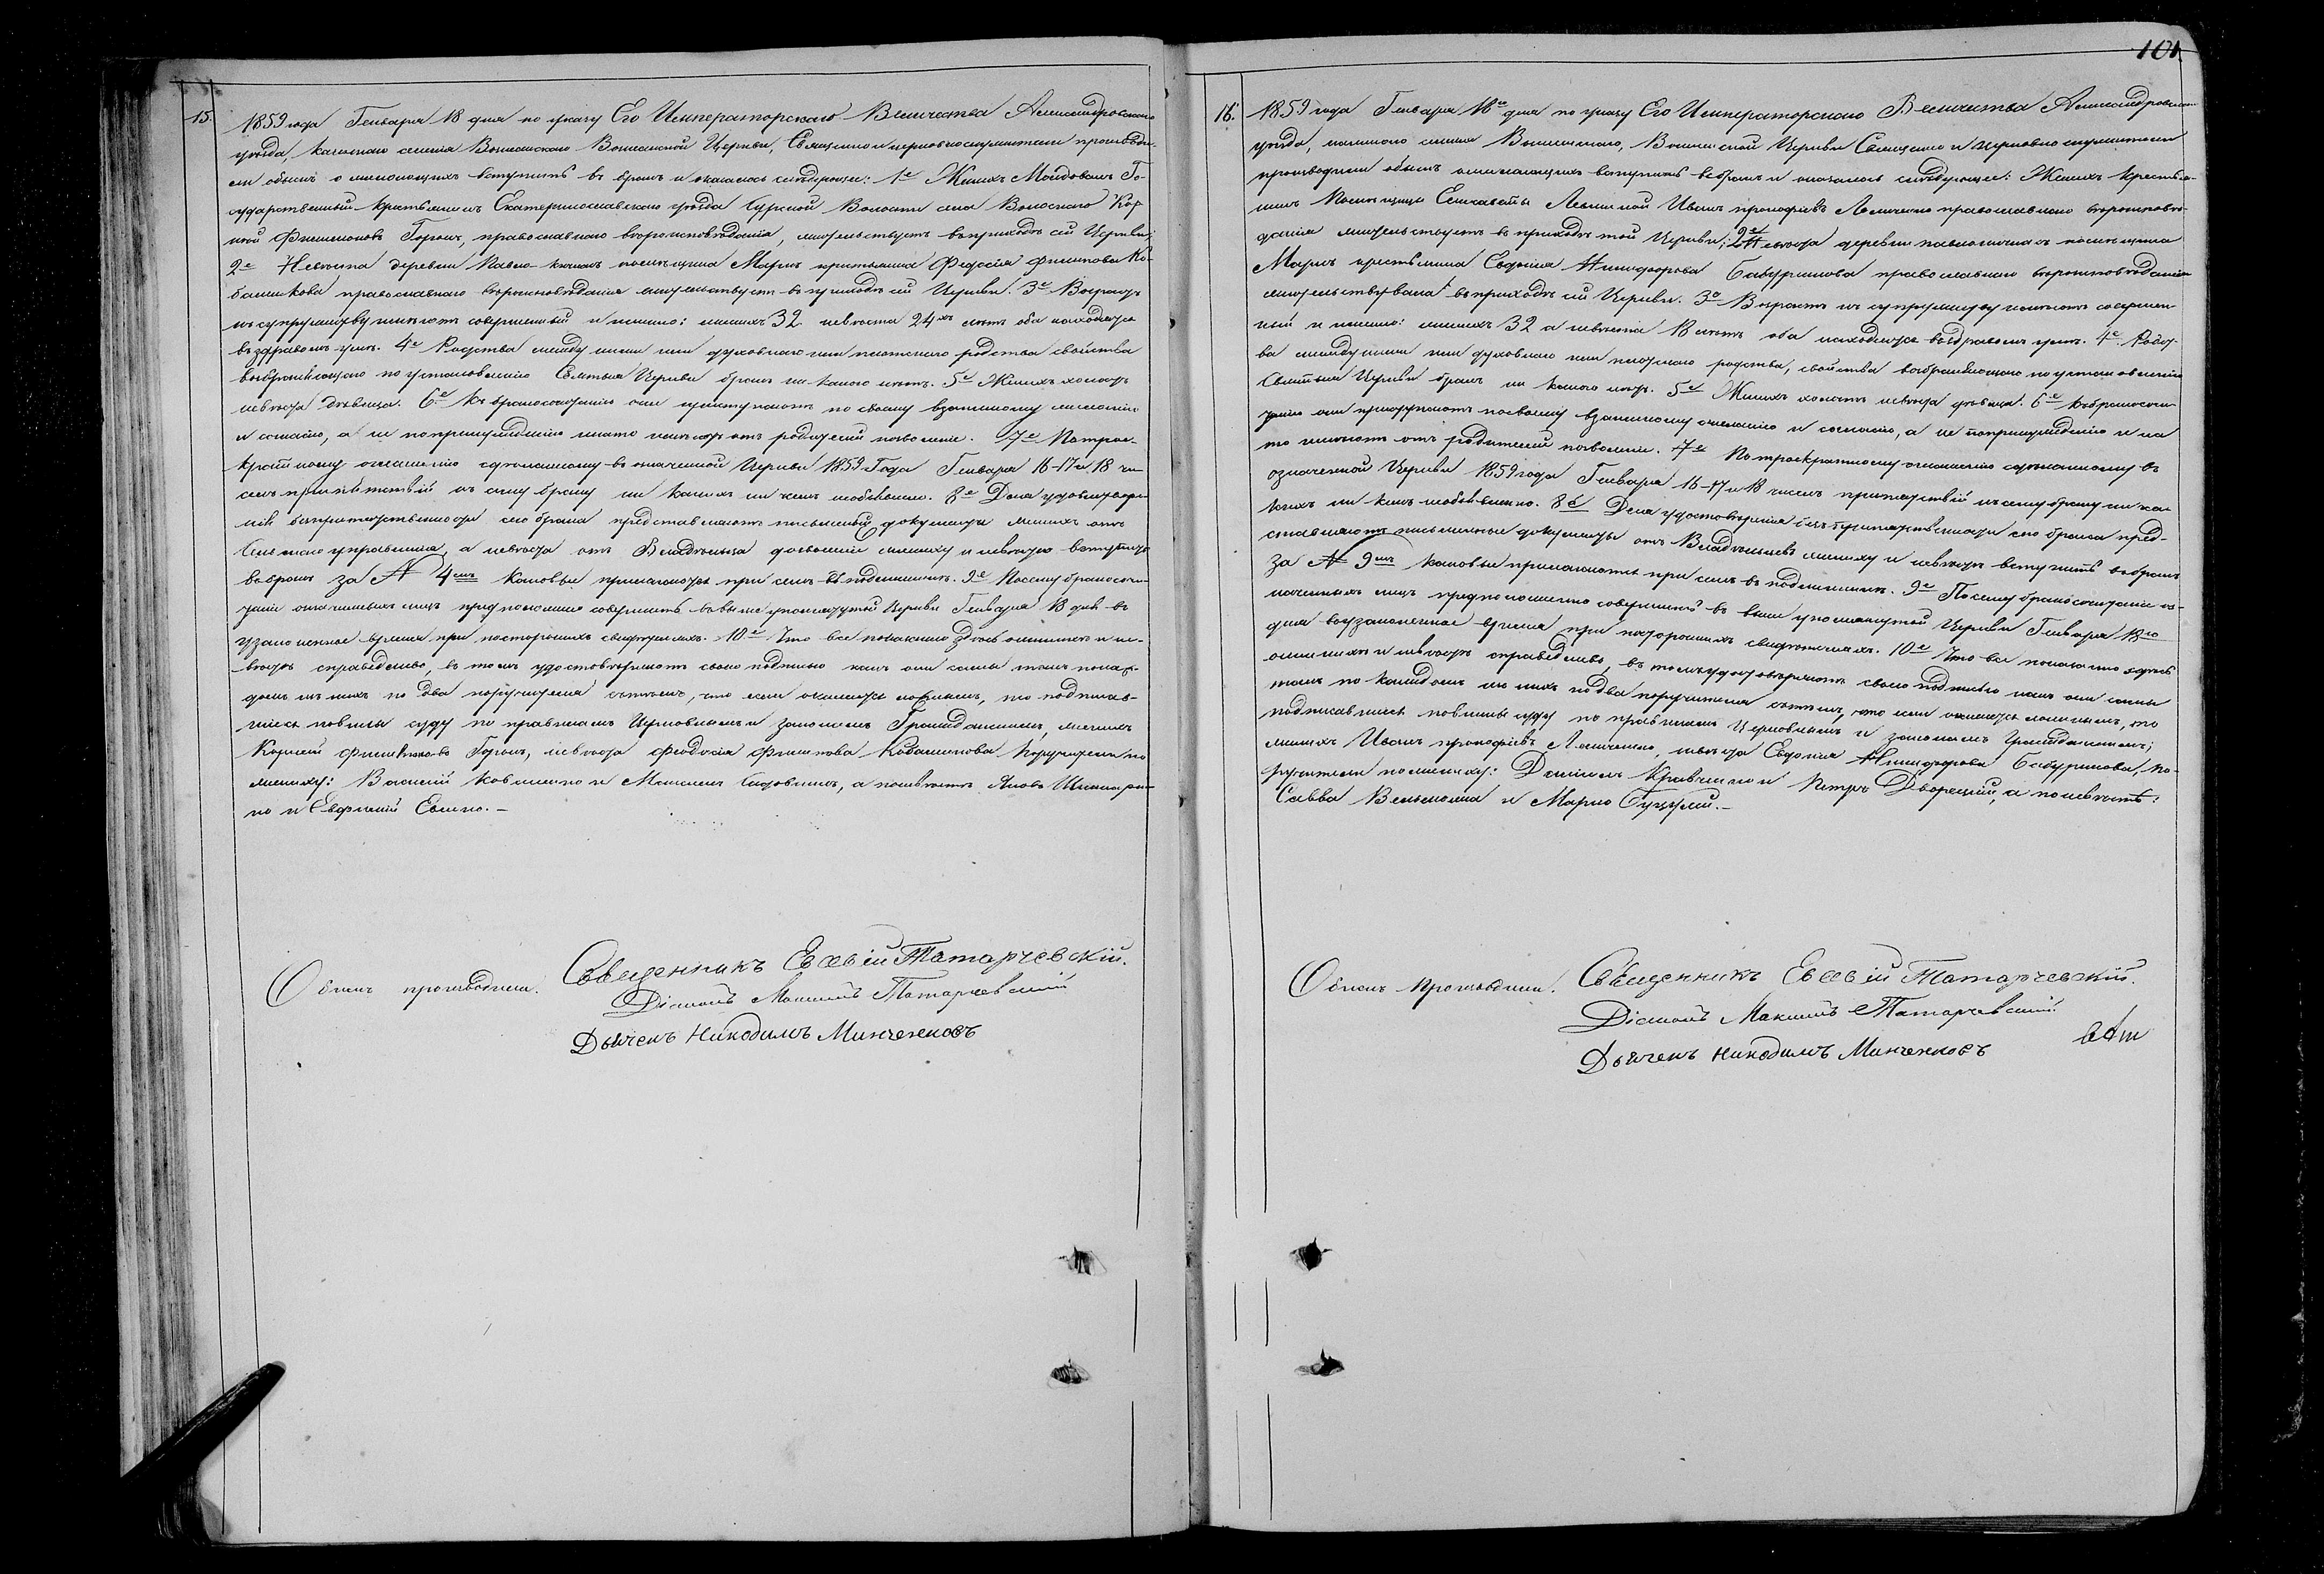 15.
1859 года Генваря 18 дня по указу Его Императорскаго Величества Александровскаго
уѣзда, Вознесенской Церкви, Священно и церковнослужители производи-
ли обыскъ о желающихъ вступить въ бракъ и оказалось слѣдующее: 1е Женихъ Го-
сударственный крестьянинъ Екатеринославскаго уѣзда Волости села Волоскаго Кор-
ней Филимоновъ Горощ, православнаго вѣроисповѣданія, жительствуетъ въ приходѣ сей Церкви;
2е Невѣста деревни Павло- помѣщика крестьянка Федосія Филипова Ко-
башнкова православнаго вѣроисповѣданія жительствуетъ въ приходѣ сей Церкви. 3е Возрастъ
къ супружеству имѣютъ совершенный и именно: женихъ 32 невѣста 24хъ лѣтъ оба находятся
въ здравомъ умѣ. 4е Родства между ими ни духовнаго ни плотскаго родства свойства
возбраняющаго по установленію Святыя Церкви бракъ ни какого нѣтъ. 5е Женихъ холостъ
невѣста дѣвица. 6е Къ бракосочетанію они приступаютъ по своему взаимному желанію
и согласію, а не по принужденію имѣютъ отъ родителей позволеніе. 7е По трое-
кратному оглашенію сдѣланному въ означенной Церкви 1859 Года Генваря 16-17 и 18 чи-
селъ препятствій къ сему браку ни какихъ ни кемъ необъявлено. 8е Для удостовѣре-
ній безпрепятственности сего брака представляютъ письменный документъ женихъ отъ
Сельскаго управленія, а невѣста отъ Владѣльца дозволеніе жениху и невѣстѣ вступить
въ бракъ за № 4мъ каковые прилагаются при семъ въ подлинникѣ. 9е Посему бракосоче-
таніе означенныхъ лицъ предположено совершить въ вышеупомянутой Церкви Генваря 18 дня въ
узаконенное время при постороннихъ свидѣтеляхъ. 10е Что все показанно здѣсь о женихѣ и не-
вѣстѣ справедливо, въ томъ удостовѣряютъ своею подписью какъ они сами такъ по каж-
домъ изъ нихъ по два поручителя съ тѣмъ, что если окажется ложнымъ, то подписав-
шіеся повинны суду по правиламъ Церковнымъ и законамъ Гражданскимъ, женихъ
Корней Филимоновъ Горощ, невѣста Феодосія Филипова Поручители по
жениху: Василій и а по невѣстѣ Яковъ
но и Евфимій
Обыскъ производили. Священникъ Евсевій Татарчевскій.
Діаконъ Максимъ Татарчевскій
Дьячекъ Никодимъ Минченковъ
101.
16.
1859 года Генваря 18го дня по указу Его Императорскаго Величества Александровскаго
уѣзда, Вознесенской Церкви Священно и церковнослужители
производили обыскъ о желающихъ вступить въ бракъ и оказалось слѣдующее: Женихъ крестья-
нинъ Помѣщицы Елисаветы Иванъ Прокофіевъ православнаго вѣроисповѣ-
данія жительствуетъ въ приходѣ той Церкви; 2е Невѣста деревни помѣщика
крестьянка Евдокія Никифорова Бабуринова православнаго вѣроисповѣданія
жительствовала въ приходѣ сей Церкви. 3е Возрастъ къ супружеству имѣютъ совершен-
ный и именно: женихъ 32 а невѣста 18 лѣтъ оба находятся въ здравомъ умѣ. 4е Родст-
ва между ими ни духовнаго ни плотскаго родства, свойства возбраняющаго по установленію
Святыя Церкви бракъ ни какого нѣтъ. 5е Женихъ холостъ невѣста дѣвица. 6е Къ бракосоче-
танію они приступаютъ по своему взаимному желанію и согласію, а не по принужденію и на
то имѣютъ отъ родителей позволеніе. 7е По троекратному оглашенію сдѣланному въ
означенной Церкви 1859 года Генваря 16-17 и 18 чиселъ препятствій къ сему браку ни ка-
кихъ ни кемъ необъявлено. 8е Для удостовѣренія безпрепятственности сего брака пред-
ставляютъ письменные документы отъ Владѣльцевъ жениху и невѣстѣ вступить въ бракъ
за № 9мъ каковые прилагаются при семъ въ подлинникѣ. 9е Посему бракосочетаніе оз-
наченныхъ лицъ предположенно совершить въ выше упомянутой Церкви Генваря 18го
дня въ узаконенное время при постороннихъ свидѣтеляхъ. 10е Что все показанно здѣсь
о женихѣ и невѣстѣ справедливо, въ томъ удостовѣряютъ своею подписью какъ они сами
такъ по каждомъ изъ нихъ по два поручителя съ тѣмъ, что если окажется ложнымъ, то
подписавшіеся повинны суду по правиламъ Церковнымъ и законамъ Гражданскимъ;
женихъ Иванъ Прокофіевъ невѣста Евдокія Никифорова Бабуринова, По-
ручители по жениху: Даніилъ Кравченко и Петръ Дворецкій, а по невѣстѣ:
Савва и Марко
Обыскъ производили. Священникъ Евсевій Татарчевскій.
Діаконъ Максимъ Татарчевскій
Дьячекъ Никодимъ Минченковъ